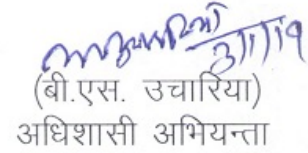 3/1/19
(बी.एस. उचारिया)
अधिशासी अभियन्ता